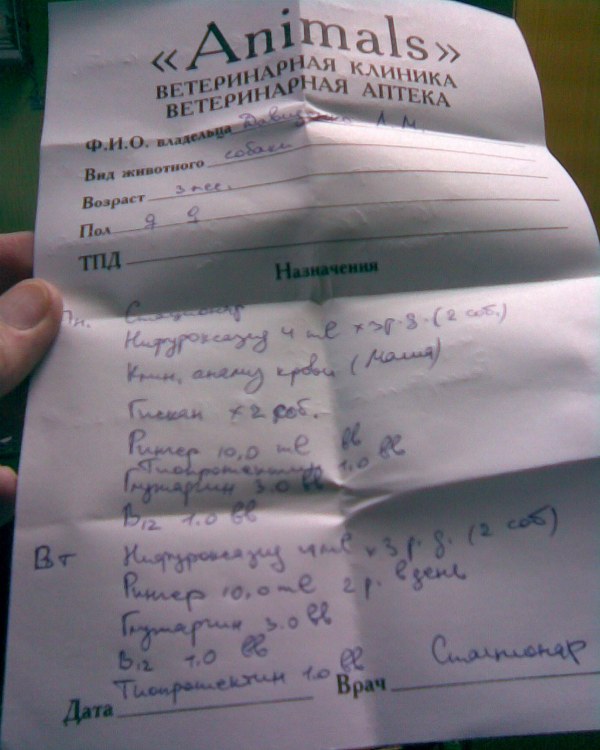 «Animals»
ВЕТЕРИНАРНАЯ КЛИНИКА
ВЕТЕРИНАРНАЯ АПТЕКА
Ф.И.О. владельца Л. М.
Вид животного собаки
Возраст 3 мес.
Пол
ТПД
Назначения
Пн. Стационар
Нифуроксазид 4 ml x 3 р. д. (2 соб.)
Клин. анализ крови (Малия)
Гискан x 2 соб.
Рингер 10,0 ml вв
Тиопротектин 1.0 вв
Глутаргин 3.0 вв
B12 1.0 вв
Вт Нифуроксазид 4 ml x 3 р. д. (2 соб)
Рингер 10,0 ml 2 р. в день
Глутаргин 3.0 вв
B12 1.0 вв
Тиопротектин 1.0 вв
Стационар
Дата Врач